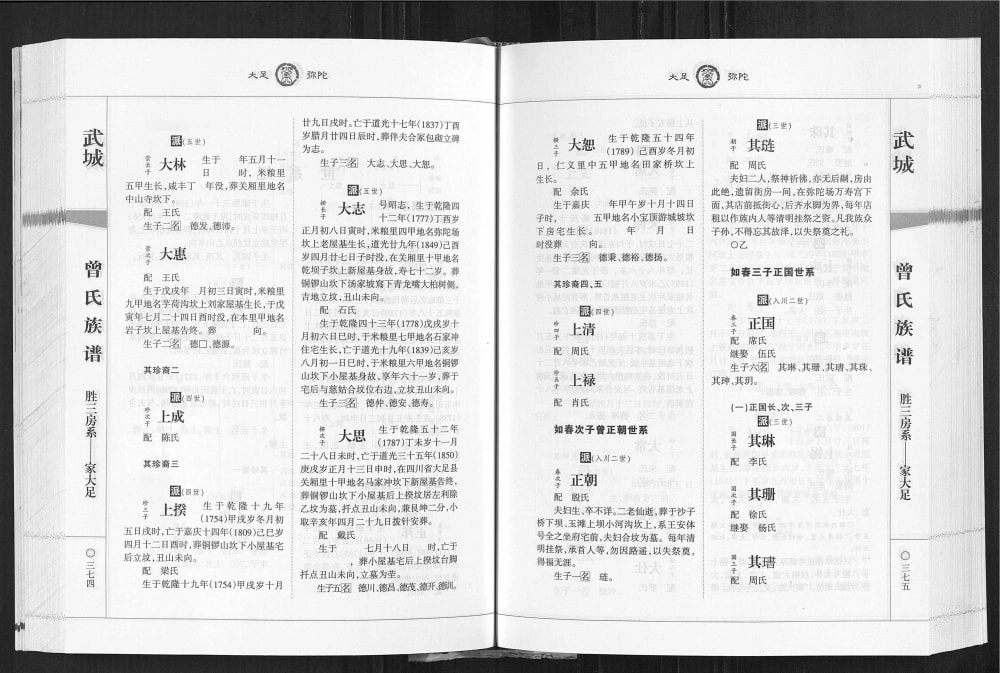 大足 弥陀
武城
曾氏族谱
胜三房系——家大足
〇三七四
派(五世)
尝长子 大林 生于 年五月十一
日 时,米粮里
五甲生长,咸丰丁 年没,葬关厢里地名
中山寺坎下。
配 王氏
生子二名 德发、德沛。
尝次子 大惠
配 王氏
生于戊戌年 月初三日寅时,米粮里
九甲地名芋荷沟坎上刘家屋基生长,于戊
寅年七月二十四日酉时没,在本里甲地名
岩子坎上屋基告终。葬 向。
生子二名 德□、德源。
其珍裔二
派(四世)
珍次子 上成
配 陈氏
其珍裔三
派(四世)
珍三子 上揆 生于乾隆十九年
(1754)甲戌岁冬月初
五日戌时,亡于嘉庆十四年(1809)己巳岁
四月十二日酉时,葬铜锣山坎下小屋基宅
后立坟,丑山未向。
配 梁氏
生于乾隆十九年(1754)甲戌岁十月
廿九日戌时。亡于道光十七年(1837)丁酉
岁腊月廿四日辰时,葬伴夫合冢包砌立碑
为志。
生子三名 大志、大思、大恕。
派(五世)
揆长子 大志 号昭志,生于乾隆四
十二年(1777)丁酉岁
正月初八日寅时,米粮里四甲地名弥陀场
坎上老屋基生长,道光廿九年(1849)己酉
岁四月廿七日子时没,在关厢里十甲地名
乾坝子坎上新屋基身故,寿七十二岁。葬
铜锣山坎下汤家坡窝下青龙嘴大柏树侧。
吉地立坟,丑山未向。
配 石氏
生于乾隆四十三年(1778)戊戌岁十
月初六日巳时,于米粮里七甲地名石家冲
住宅生长,亡于道光十九年(1839)己亥岁
八月初一日巳时,于米粮里六甲地名铜锣
山坎下小屋基身故,享年六十一岁,葬于
宅后与慈姑合坟位右边,立坟丑山未向。
生子三名 德仲、德安、德寿。
揆次子 大思 生于乾隆五十二年
(1787)丁未岁十一月
二十八日未时,亡于道光三十五年(1850)
庚戌岁正月十三日申时,在四川省大足县
关厢里十甲地名马家冲坎下新屋基告终,
葬铜锣山坎下小屋基后上揆坟居左利除
乙坟为墓,扦点丑山未向,兼艮坤二分,小
取辛亥年四月二十九日拨针安葬。
配 戴氏
生于 七月十八日 时,亡于
,葬小屋基宅后上揆坟台脚
扦点丑山未向,立墓为茔。
生子五名 德川、德昌、德茂、德开、德训。
大足 弥陀
揆三子 大恕 生于乾隆五十四年
(1789)己酉岁冬月初
日,仁义里中五甲地名田家桥坎上
生长。
配 余氏
生于嘉庆 年甲午岁十月十四日
子时, 五甲地名小宝顶游城坡坎
下房宅生长。 年 月 日
时没葬 向。
生子三名 德秉、德裕、德扬。
其珍裔四、五
派(四世)
珍四子 上清
配 周氏
珍五子 上禄
配 肖氏
如春次子曾正朝世系
派(入川二世)
春次子 正朝
配 殷氏
夫妇生、卒不详。二老仙逝,葬于沙子
桥下坝、玉滩上坝小河沟坎上,系壬安体
号全之坐府宅前,夫妇合坟为墓。每年清
明挂祭,承首人等,勿因路遥,以失祭奠,
得福无涯。
生子一名 琏。
派(三世)
朝子 其琏
配 周氏
夫妇二人,祭神祈佛,亦无后嗣,房由
此绝,遗留街房一间,在弥陀场万寿宫下
面,其店前抵街心,后齐水脚为界,每年店
租以作族内人等清明挂祭之资。凡我族众
子孙,不得忘其故泽,以失祭奠之礼。
〇乙
如春三子正国世系
派(入川二世)
春三子 正国
配 席氏
继娶 伍氏
生子六名 其琳、其珊、其瑨、其珠、
其珅、其玥。
(一)正国长、次、三子
派(三世)
国长子 其琳
配 李氏
国次子 其珊
配 徐氏
继娶 杨氏
国三子 其瑨
配 周氏
武城
曾氏族谱
胜三房系——家大足
〇三七五